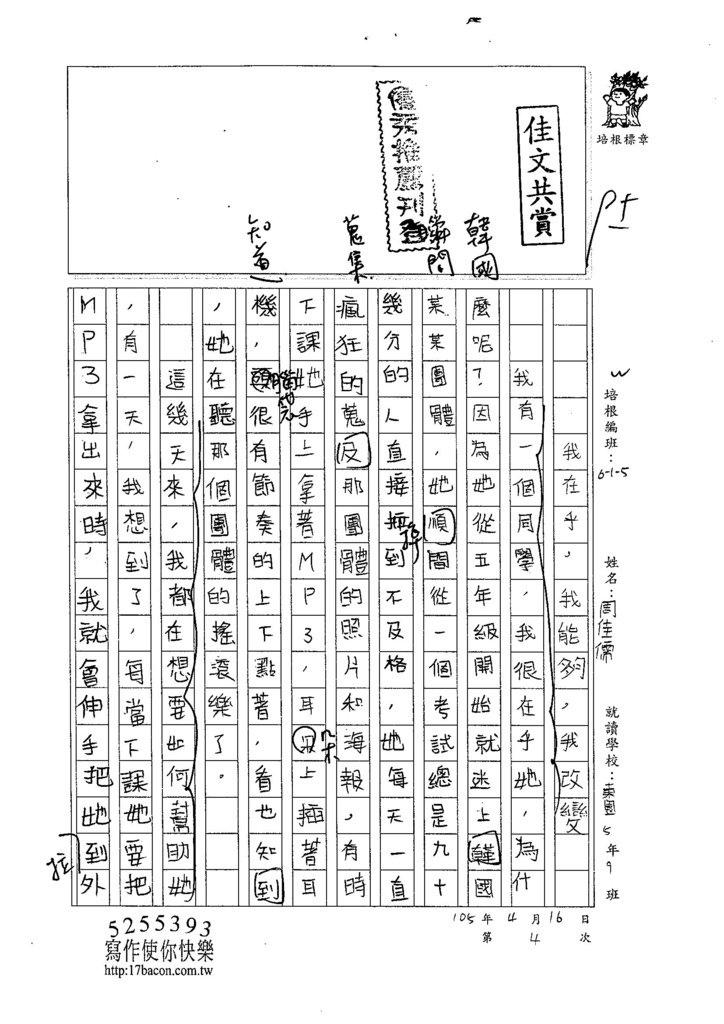 培根標章
佳文共賞
優秀推薦刊登
P5
韓國
瞬間
蒐集
知道
培根編班：6-1-5
姓名：周佳儒
就讀學校：東園5年9班
我在乎，我能夠，我改變
我有一個同學，我很在乎她，為什
麼呢？因為她從五年級開始就迷上韓國
某某團體，她順間從一個考試總是九十
幾分的人直接掉到不及格，她每天一直
瘋狂的蒐及那團體的照片和海報，有時
下課她手上拿著MP3，耳朵上插著耳
機，頭腦很有節奏的上下點著，看也知到
，她在聽那個團體的搖滾樂了。
這幾天來，我都在想要如何幫助她
，有一天，我想到了，每當下課她要把
MP3拿出來時，我就會伸手把她到外
拉
105年4月16日
第4次
5255393
寫作使你快樂
http:17bacon.com.tw